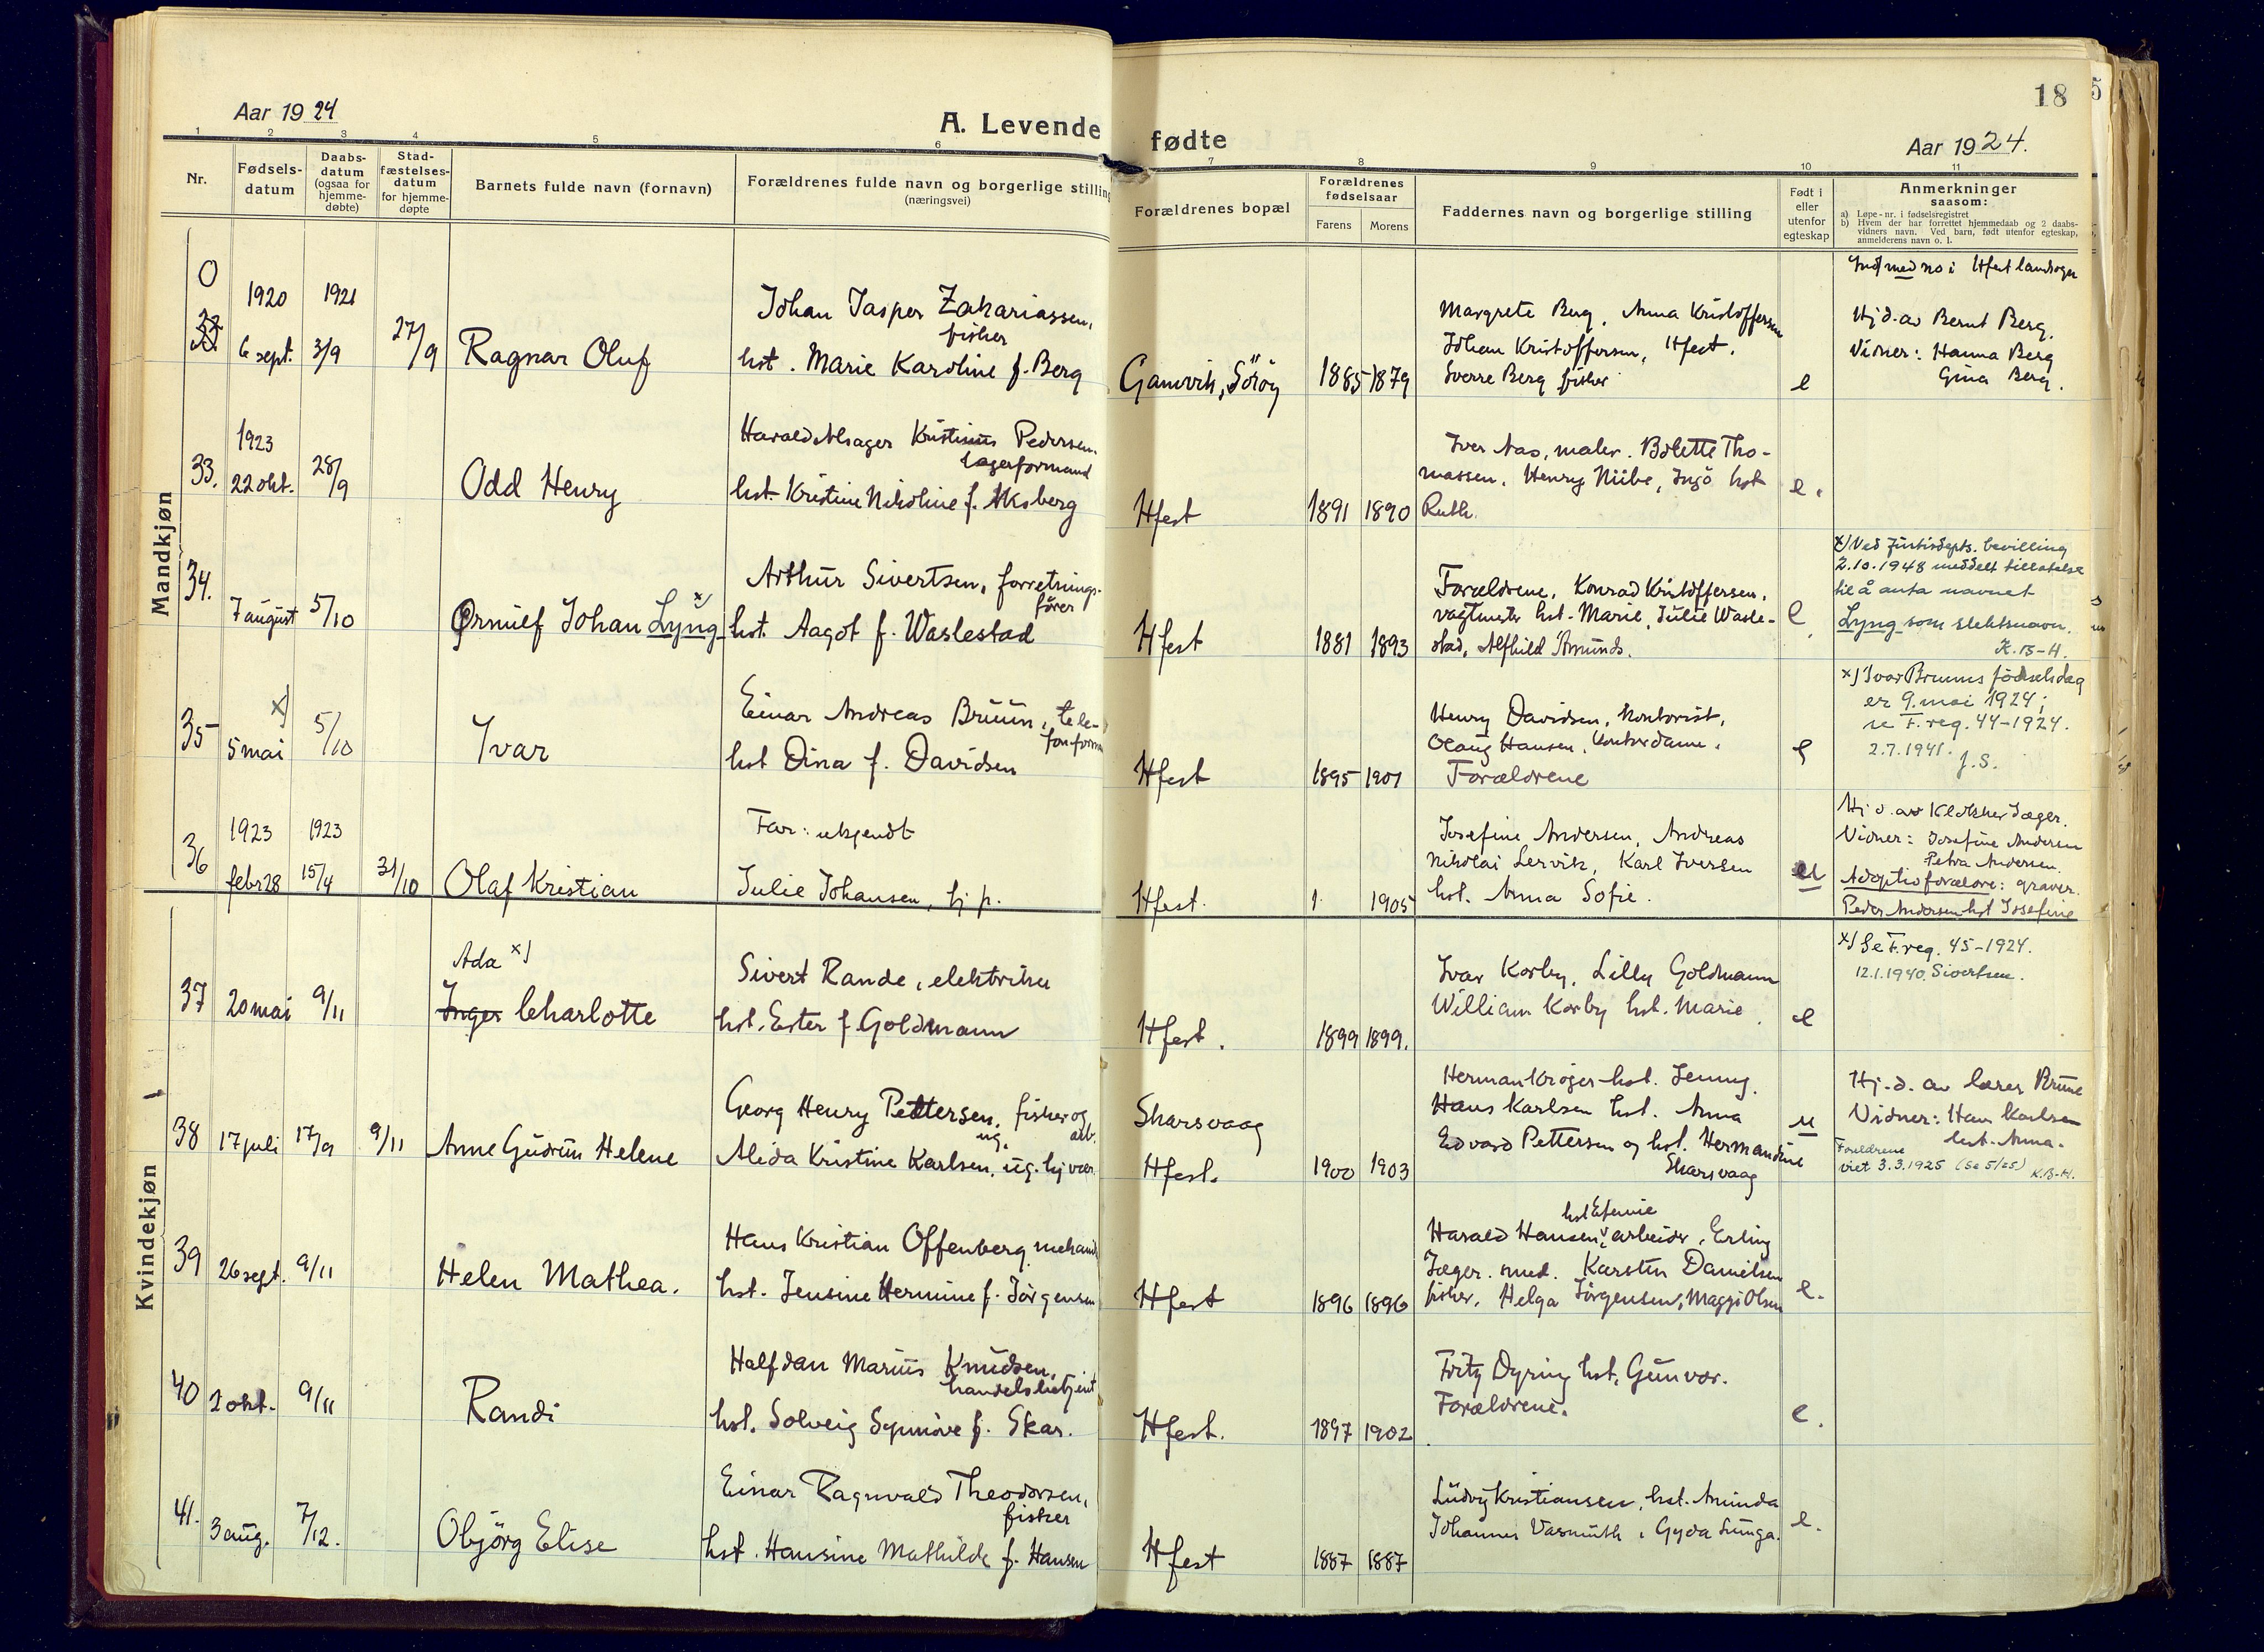 Aar 1924
A. Levende fødte
18
Aar 1924.
1 2 3 4 5 6 7 8 9 10 11
Nr.
Fødsels-
datum
Daabs-
datum
(ogsaa for
hjemme-
døbte)
Stad-
fæstelses-
datum
for hjemme-
døpte
Barnets fulde navn (fornavn)
Forældrenes fulde navn og borgerlige stilling
(næringsvei)
Forældrenes bopæl
Forældrenes
fødselsaar
Farens Morens
Faddernes navn og borgerlige stilling
Født i
eller
utenfor
egteskap
Anmerkninger
saasom:
a) Løpe-nr. i fødselsregistret
b) Hvem der har forrettet hjemmedaab og 2 daabs-
vidners navn. Ved barn, født utenfor egteskap,
anmelderens navn o. l.
Mandkjøn
0
1920 1921
6 sept. 3/9 27/9 Ragnar Oluf
Johan Jasper Zakariassen,
fisher
hst. Marie Karoline f. Berg
Gamvik, Sørøy 1885 1879
Margrete Berg, Anna Kristoffersen
Johan Kristoffersen, Hfest.
Sverre Berg fisker
e
med no i Hfest landsogn
Hj d. av Bernt Berg.
Vidner: Hanna Berg
Gina Berg.
33.
1923
22 okt. 28/9 Odd Henry
Harald Alsager Kristinus Pedersen
lagerformand
hst. Kristine Nikoline f. Aksberg
Hfest 1891 1890
Iver Aas, maler. Bolette Tho-
massen, Henry Niibe, Ingó hst
Ruth.
e.
34.
7 august 5/10 Ørnulf Johan Lyng x)
Arthur Sivertsen, forretnings-
fører
hst. Aagot f. Waslestad
Hfest 1881 1893
Forældrene, Konrad Kristoffersen,
vagtmester hst. Marie, Julie Wasle-
stad, Alfhild Amunds.
e
x) Ved Justisdepts. bevilling
2.10.1948 meddelt tillatelse
til å anta navnet
Lyng som slektsnavn.
K.B-H.
35
x)
5 mai 5/10 Ivar
Einar Andreas Bruun, tele-
fonform
hst Dina f. Davidsen
Hfest 1895 1901
Henry Davidsen, kontorist,
Olaug Hansen, kontordame.
Forældrene
e
x) Ivar Bruuns fødselsdag
er 9. mai 1924;
se F. reg. 44-1924.
2.7.1941. J.S.
36
1923 1923
febr 28 15/4 31/10 Olaf Kristian
Far: ukjendt
Julie Johansen, hj p.
Hfest. 1 1905
Josefine Andersen, Andreas
Nikolai Lervik, Karl Iversen
hst. Anna Sofie.
u
Hj d. av Klokker Jæger.
Vidner: Josefine Andersen
Petra Andersen.
Adoptivforældre: graver.
Peder Andersen hst Josefine
Kvindekjøn
37 20 mai 9/11
Ada x)
Inger Charlotte
Sivert Rande, elektriker
hst. Ester f. Goldmann
Hfest. 1899 1899.
Ivar Korby, Lilly Goldmann
William Korby hst. Marie
e
x) Se F. reg. 45-1924.
12.1.1940. Sivertsen.
38 17 juli 17/9 9/11 Anne Gudrun Helene
Georg Henry Pettersen, fisker og
ug. arb.
Alida Kristine Karlsen, ug. hj vær.
Skarsvaag
Hfest. 1900 1903
Herman Krøger hst. Jenny.
Hans Karlsen hst. Anna
Edvard Pettersen og hst. Hermandine
Skarsvaag
u
Hj. d. av lærer Brune
Vidner: Hans Karlsen
hst. Anna.
Foreldrene
viet 3.3.1925 (Se 5/25) K.B-H.
39 26 sept. 9/11 Helen Mathea.
Hans Kristian Offenberg, mekani
hst. Jensine Hermine f. Jörgensen
Hfest 1896 1896
hst Efemie
Harald Hansen, arbeider, Erling
Jæger. smed. Karsten Danielsen
fisker. Helga Jörgensen, Maggi Olsen
e.
40 2 okt. 9/11 Randi
Halfdan Marius Knudsen,
handelsbetjent
hst. Solveig Synnöve f. Skar.
Hfest. 1897 1902
Fritz Dyring hst. Gunvor.
Forældrene.
e.
41. 3 aug. 7/12. Objörg Elise
Einar Ragnvald Theodorsen,
fisker
hst. Hansine Mathilde f. Hansen
Hfest 1887 1887
Ludvig Kristiansen, hst. Aminda
Johannes Vasmuth, Gyda Lunga.
e.